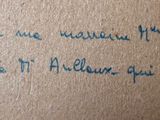 ma marraine Mme
Mr Aulloux qui